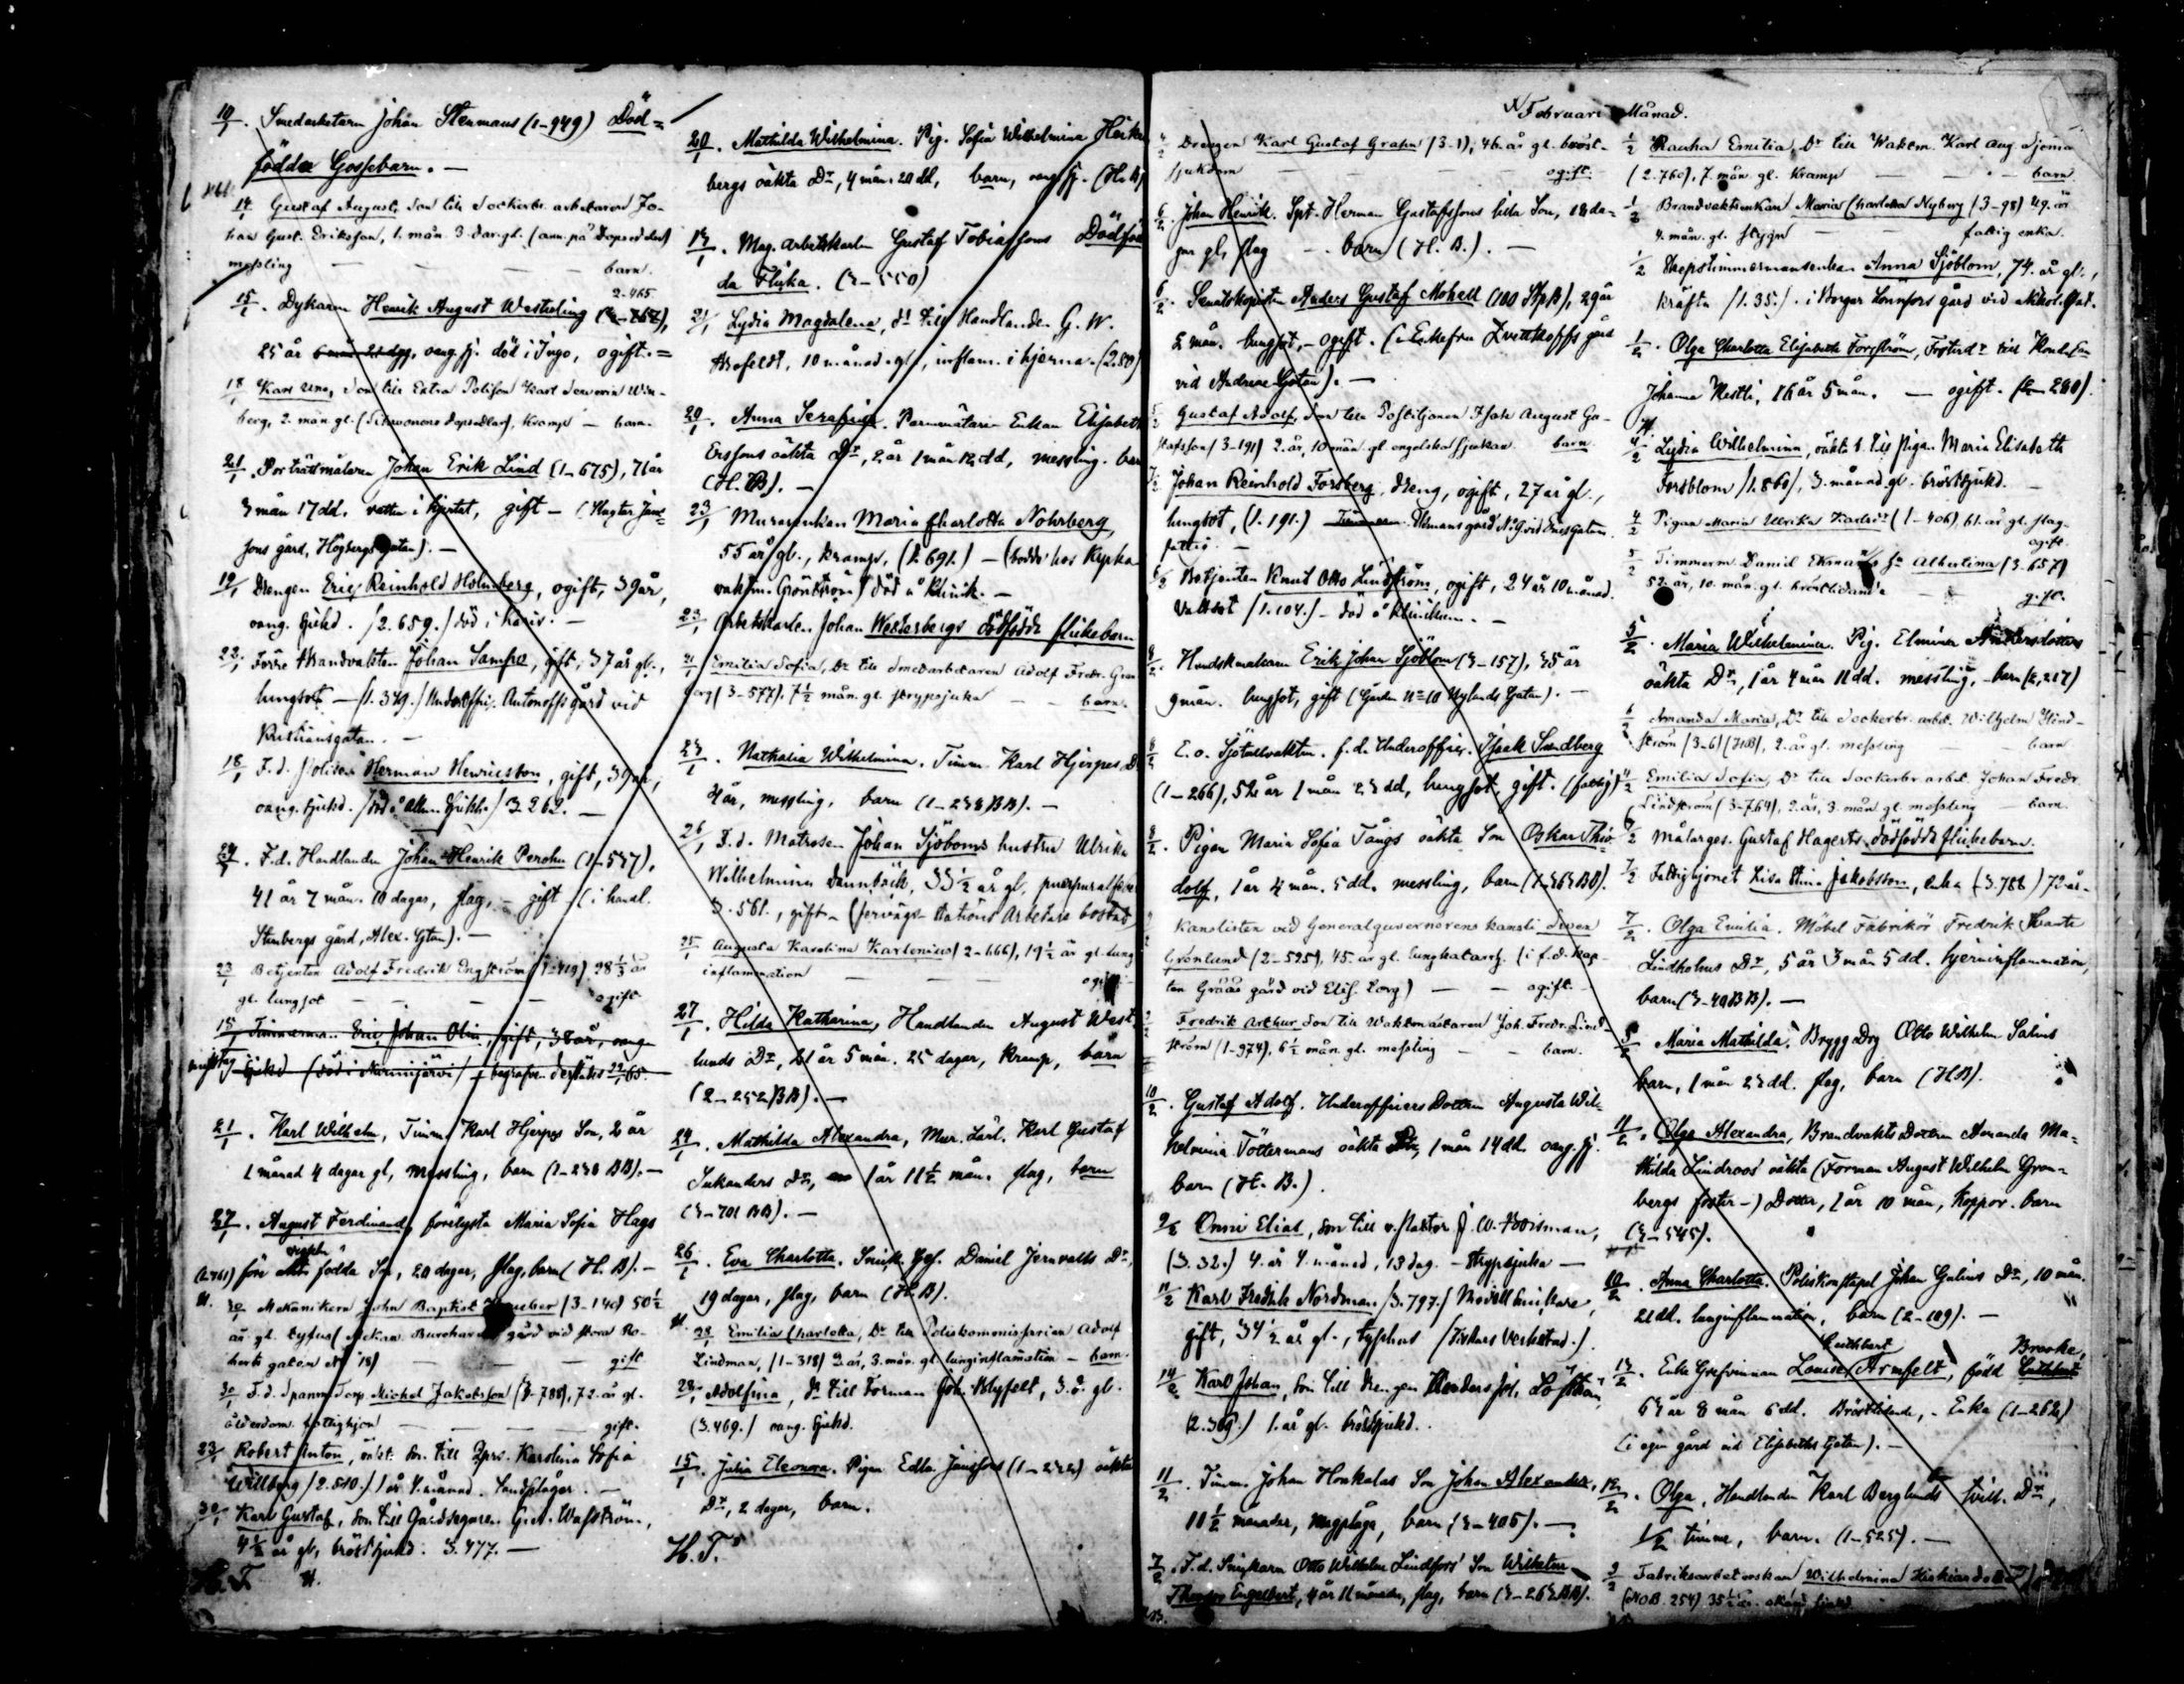 10/1. Smedarbetaren Johan Stenmans (1-949) Död=
födda Gossebarn. —
14/1 Gustaf August, Son till Sockerbr. arbetaren Jo-
han Gust. Eriksson, 1. mån. 3. dar gl.
messling — — — barn.
2-465
15/1. Dykaren Henrik August Westerling
25 år oang. sj. död i Ingo, ogift. =
18/1 Karl Uno, Son till Extra Polisen Karl Severin Win-
berg, 2. mån. gl. kramp — barn.
21/1. Porträttmålaren Johan Erik Lind (1-675), 71 år
3 mån 17 dd. vatten i hjertat, gift —
sons gård, Högbergsgatan). —
19/1 Drengen Eric Reinhold Holmberg, ogift, 39 år,
oang. sjukd. (2.659.) död i
22/1 Förre Brandvakten Johan Sampo, gift, 37 år gl.,
lungsot — (1.349.) Underoffic. Antonoffs gård vid
Kristiansgatan. —
18/1 F.d. Polisen Herman Henricsson, gift, 39 år,
oang. sjukd. 3.262. —
24/1. F.d. Handlanden Johan Henrik Perohn (1-577),
41 år 7 mån. 10 dagar, slag, — gift — (i handl.
Stenbergs gård, Alex. Gtan). —
23/1 Betjenten Adolf Fredrik Engström (1-419) 28 1/3 år
gl. lungsot — — — ogift.
15/1 Timmerman Eric Johan Olin, gift, 38 år, oang.
sjukd (död i Nurmijärvi) begrafven derstädes 22/1 65.
21/1. Karl Wilhelm, Timm. Karl Hjerpes Son, 2 år
1 månad 4 dagar gl, messling, barn (1-238 BB). —
27/1. August Ferdinand, förelysta Maria Sofia Hags
före vigseln födda Son, 20 dagar, slag, barn (H. B). —
(2.461)
30/1 Mekanikern John Baptist (3-140) 50 1/2
år. gl. tyfus gård vid stora Ro-
berts gatan № 18) — — — gift
30/1 F.d. Spanm. Torp Michel Jakobsson (3-788), 72. år gl.
ålderdom. fattighjon — — — gift.
23/1 Robert Anton, oäkt. Son till Karolina Sofia
Willberg (2.510.) 1 år 4. månad. —
30/1 Karl Gustaf, Son till Gårdsegaren Gust. Wahlström,
4 1/2 år gl, bröstsjukd. 3.477. —
H.T.
20/1. Mathilda Wilhelmina. Pig. Sofia Wilhelmina
bergs oäkta Dr, 4 mån. 20 dd, barn, oang. sj. (H.B)
19/1. Mag. arbetskarlen Gustaf Tobiassons Dödföd
da Flicka. (3-550)
21/1 Lydia Magdalena, dr till Handlanden G. W.
10 månad. gl, inflam. i hjerna. (2.50)
20/1. Anna Serafina. Elisabeth
Erssons oäkta Dr, 2 år 1 mån 12 dd, messling. barn
(H.B). —
23/1 Murareenkan Maria Charlotta Nohrberg,
55 år gl., kramp, (2.691.) — (bodde hos Kyrko
vaktm. Grönström) död å klinik. —
23/1 Arbetskarlen Johan Westerbergs dödfödde flickebarn
21/1 Emilia Sofia, Dr till Smedarbetaren Adolf Fredr. Gran
berg (3-577). 7 1/2 mån. gl. strypsjuka — — barn.
23/1. Nathalia Wilhelmina. Timm. Karl Hjerpes D
4 år, messling, barn (1-238 BB). —
26/1 F.d. Matrosen Johan Sjöboms hustru Ulrika
Wilhelmina 33 1/2 år gl,
3.561., gift. — (jernvägs-stations Arbetare bostad
25/1 Augusta Karolina Karlenius (2-666), 19 1/2 år gl. lung
inflammation — — ogift
27/1. Hilda Katharina, Handlanden August West
lunds Dr, 21 år 5 mån. 25 dagar, kramp, barn
(2-252 BB). —
24/1. Mathilda Alexandra, Mur. Lärl. Karl Gustaf
Sukanders dr, 1 år 11 1/2 mån. slag, barn
(3-701 BB). —
26/1. Eva Charlotta. Snick. Ges. Daniel Jernvalls Dr,
19 dagar, slag, barn (H.B).
28/1 Emilia Charlotta, Dr till Poliskommissarien Adolf
Lindman, (1-318) 2 år, 3. mån. gl. lunginflamation — barn.
28/1 Adolfina, dr till Forman Joh. Blyfelt, 3. å. gl.
(3.469.) oang. sjukd.
15/1. Julia Eleonora. Pigan Edla Janssons oäkta
Dr, 2 dagar, barn.
H.T.
Februari Månad.
Drengen Karl Gustaf Grahn (3-1), 46. år gl. bröst-
sjukdom — — — ogift.
6/2. Johan Henrik. Spt. Herman Gustafssons lilla Son, 18 da-
gar gl, slag — barn (H. B.). —
6/2. Senatskopisten Anders Gustaf Mohell, 29 år
2 mån. lungsot, — ogift. (i Enkefru gård
vid Andreæ Gatan). —
5/2 Gustaf Adolf, Son till Postiljonen Isak August Gu-
stafsson (3-191) 2. år, 10 mån. gl. engelska sjukan barn
7/2 Johan Reinhold Forsberg, dreng, ogift, 27 år gl.,
lungsot, (1.191.) gård № 9 vid
fattig. —
6/2 Betjenten Knut Otto Lindström, ogift, 24 år 10 månad.
vattsot (1.104.) — död å kliniken. —
8/2. Handskmakaren Erik Johan Sjöblom (3-157), 35 år
9 mån. lungsot, gift (Gården № 10 Nylands Gatan). —
8/2 E.o. Sjötullvakten. f.d. Underoffic. Isaak Sundberg
(1-266), 52 år 1 mån 23 dd, lungsot, gift. (fattig)
8/2. Pigan Maria Sofia Tångs oäkta Son Oskar Thio-
dolf, 1 år 4 mån. 5 dd. messling, barn (1-363 BB).
Kanslisten vid Generalguvernörens kansli Sven
Grönlund (2-525), 45. år gl. lungkatarrh. (i f.d. Kap-
ten Gråås gård vid Elis. torg) — — ogift. —
9/2 Fredrik Arthur Son till Waktmästaren Joh. Fredr. Lind-
ström (1-974), 6 1/2 mån. gl. messling — — barn.
10/2. Gustaf Adolf. Underofficers Dottren Augusta Wil-
helmina Töttermans oäkta 1 mån 14 dd. oang. sj.
barn (H. B.).
9/2 Onni Elias, son till v. Pastor J. W. Roisman,
(3.32.) 4. år 4. månad, 13 dag. — Strypsjuka —
11/2 Karl Fredrik Nordman (3.797.) Modellsnickare,
gift, 34 1/2 år gl., typhus (Fiskars Verkstad.)
14/2 Karl Johan, Son till Drengen
(2.369.) 1. år gl. bröstsjukd.
11/2. Timm. Johan Honkalas Son Johan Alexander,
11 1/2 månader, magplåga, barn (3-405). —
7/2. F.d. Snickaren Otto Wilhelm Lindfors' Son Wilhelm
Theodor Engelbert, 4 år 11 månader, slag, barn (3-263 BB).
1/2 Rauha Emilia, Dr till Waktm. Karl Aug. Sjöma
(2.760), 7. mån. gl. kramp — — — barn
1/2 Brandvaktsenkan Maria Charlotta Nyberg (3-98) 49. år
4. mån. gl. styng — — fattig enka.
1/2 Skepstimmermansenkan Anna Sjöblom, 74. år gl.,
kräfta (1.35.). i Borgar Lönnfors gård vid Nikol. Gat.
1/2. Olga Charlotta Elisabeth Forsström, Fosterdr till
Johanna Nestli, 16 år 5 mån. — ogift. (2-280).
4/2 Lydia Wilhelmina, oäkta d. till Pigan Maria Elisabeth
Forsblom (1.860), 3. månad. gl. bröstsjukd. —
4/2 Pigan Maria Ulrika Karlsdr (1-406) 61. år gl. slag.
ogift.
5/2 Timmerm. Daniel Ekmans hu Albertina (3.657)
52. år, 10. mån. gl. bröstlidande — gift.
5/2. Maria Wilhelmina. Pig. Elmina Andersdotters
oäkta Dr, 1 år 4 mån 11 dd. messling, — barn (2,217)
6/2 Amanda Maria, Dr till Sockerbr. arbet. Wilhelm Hind-
ström (3-6) (HB), 2. år gl. messling barn
Emilia Sofia, Dr till Sockerbr. arbet. Johan Fredr.
Lindström (3-764), 2. år, 3. mån. gl. messling — barn.
6/2 Målarges. Gustaf Hagerts dödfödde flickebarn.
7/2 Fattighjonet Lisa Stina Jakobsson, enka (3.788) 72 år. —
7/2. Olga Emilia. Möbel Fabrikör Fredrik
Lindholms Dr, 5 år 3 mån 5 dd. hjerninflammation,
barn (3-40 BB). —
5/2 Maria Mathilda. Brygg Drg Otto Wilhelm Salins
barn, 1 mån 23 dd. slag, barn (HB).
11/2. Olga Alexandra, Brandvakts Dottren Amanda Ma-
thilda Lindroos' oäkta (Forman August Wilhelm Gron-
bergs foster-) Dotter, 1 år 10 mån, koppor. barn
(3-545).
10/2. Anna Charlotta. Poliskonstapel Johan Gulins Dr, 10 mån.
21 dd. lunginflammation, barn (2-109). —
Cuthbert Brooke,
13/2. Enke Grefvinnan Louise Armfelt, född Cuthbert
63 år 8 mån 6 dd. Bröstlidande, — Enka (1-262)
(i egen gård vid Elisabeths Gatan). —
12/2. Olga, Handlanden Karl Berglunds tvill. Dr,
1/2 timme, barn. (1-525). —
9/2 Fabriksarbetarskan Wilhelmina
(NOB. 254) 35 1/2 år. okänd sjukd.